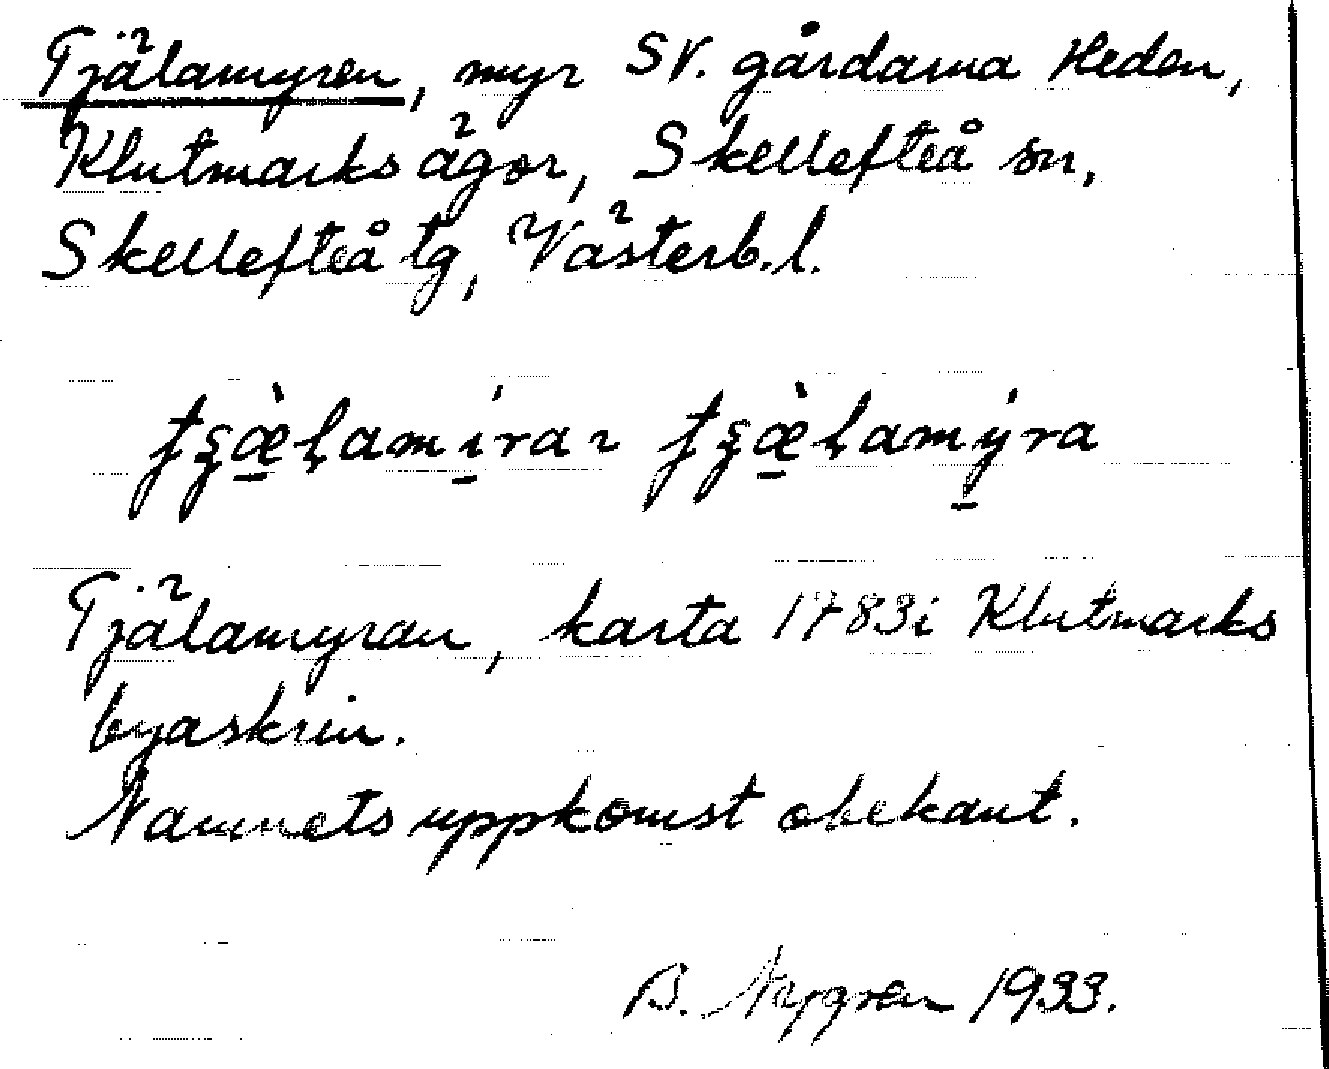 Tjälamyren, myr SV. gårdarna Heden,
Klutmarks ägor, Skellefteå sn,
Skellefteå tg, Västerb.l.
Tjälamyran, karta 1783 i Klutmarks
byaskrin.
Namnets uppkomst obekant.
B. Nygren 1933.